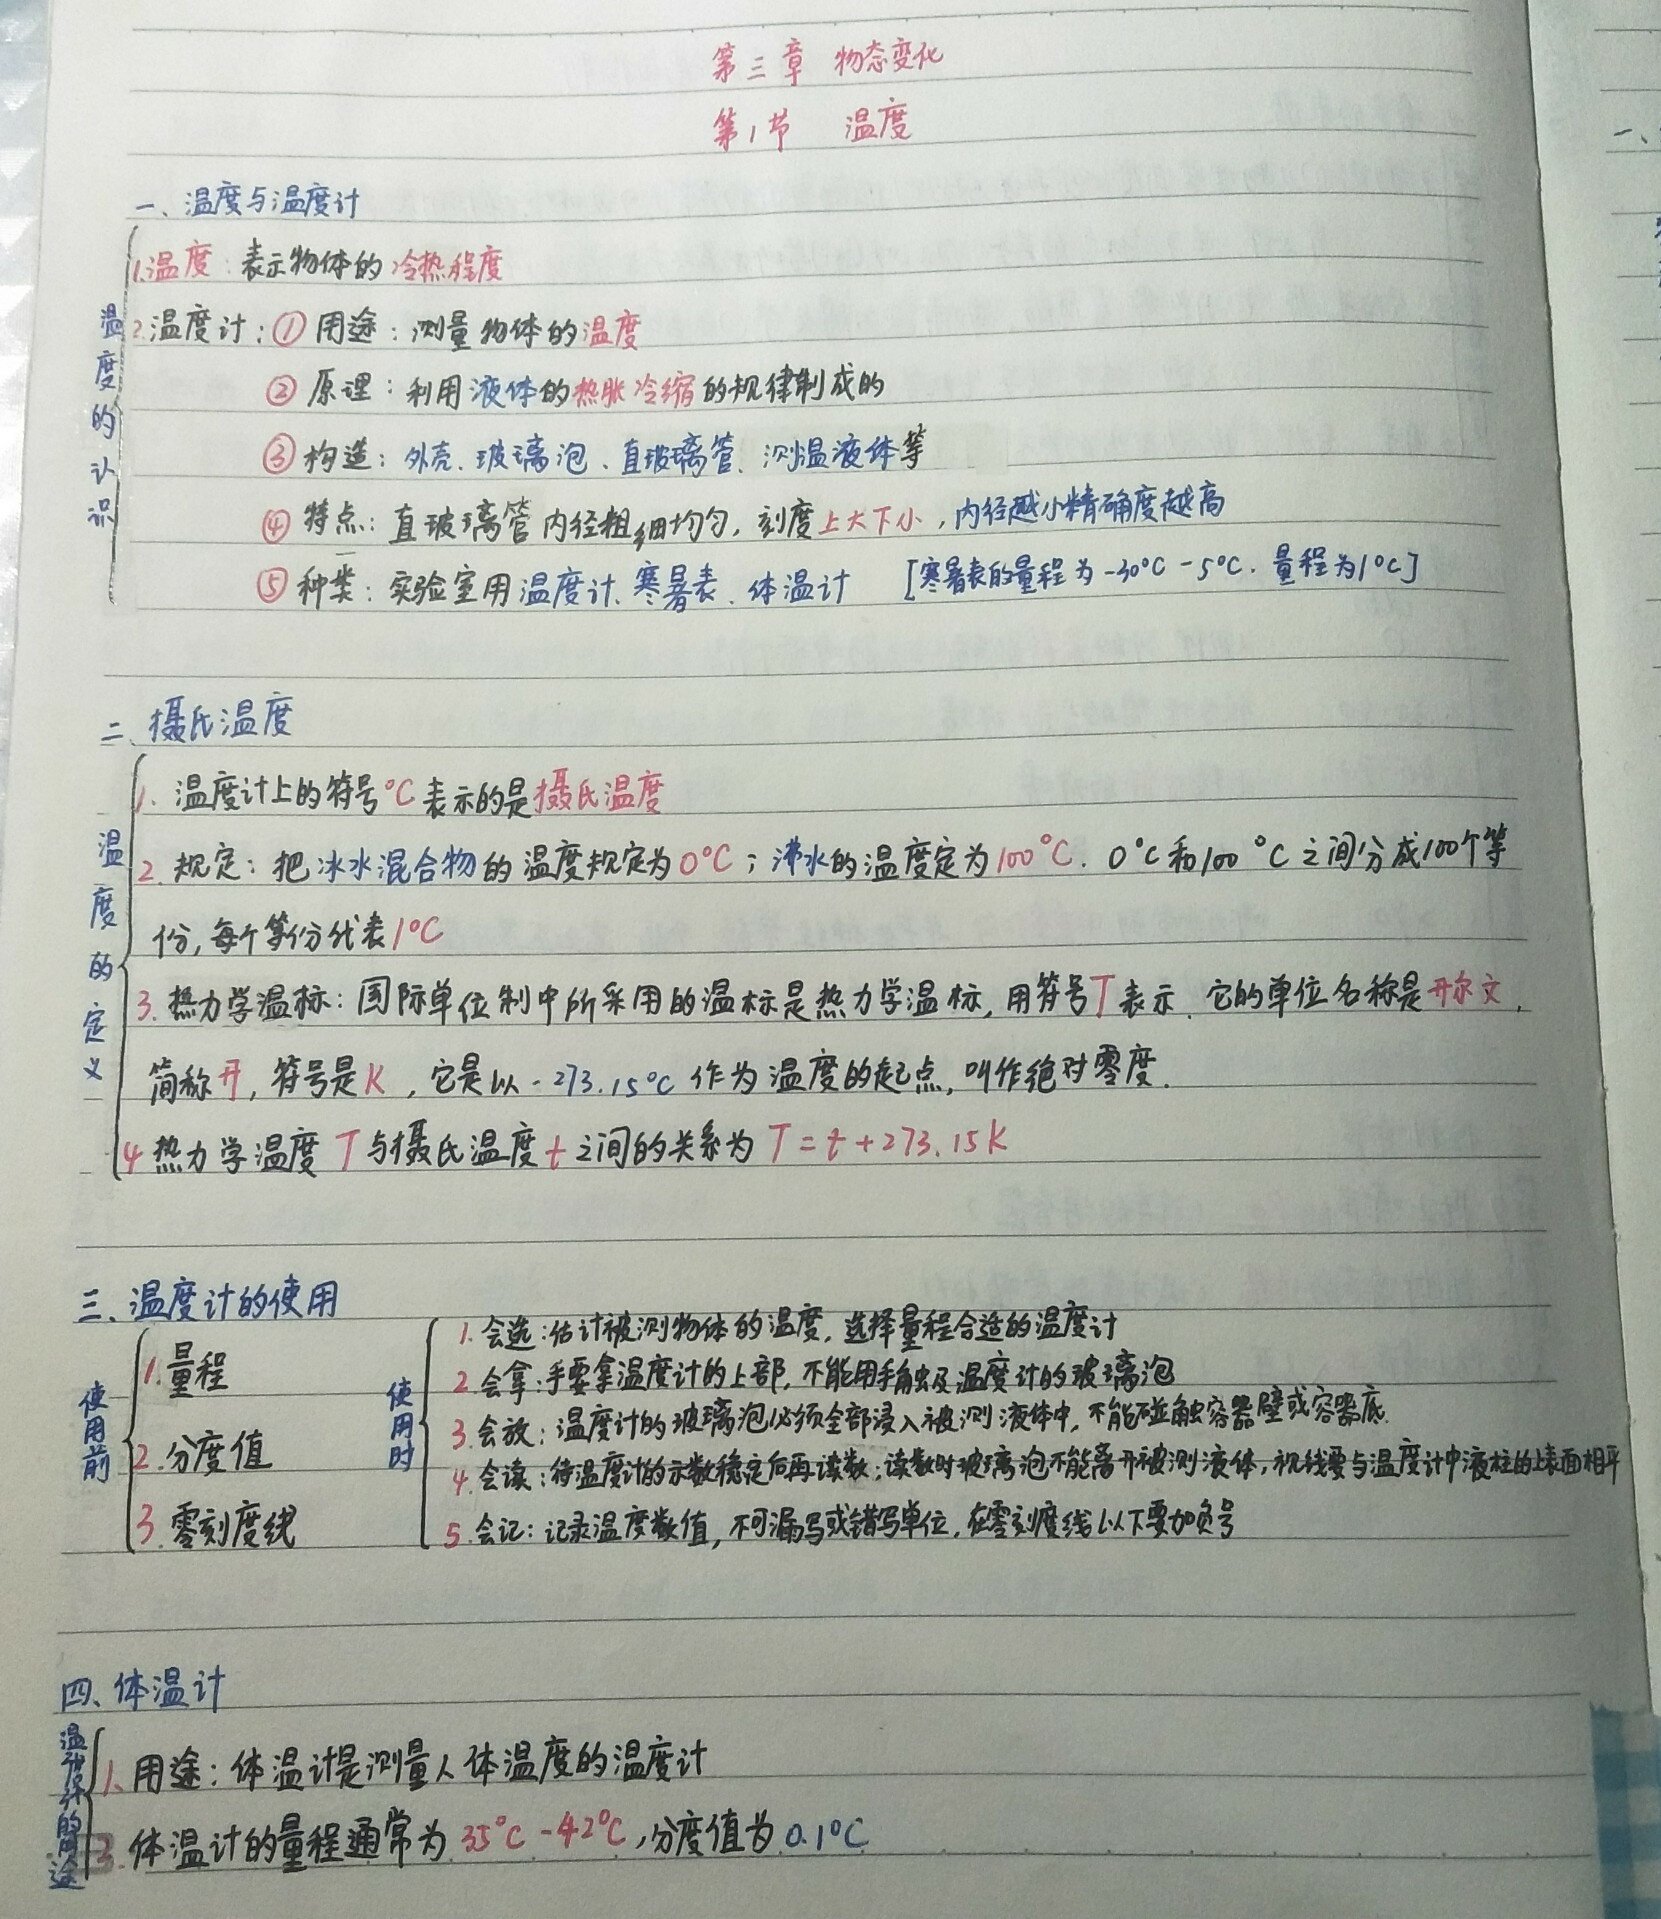 第三章 物态变化
第1节 温度
一、温度与温度计
温度的认识
1.温度：表示物体的冷热程度
2.温度计：①用途：测量物体的温度
②原理：利用液体的热胀冷缩的规律制成的
③构造：外壳、玻璃泡、直玻璃管、测温液体等
④特点：直玻璃管内径粗细均匀，刻度上大下小，内径越小精确度越高
⑤种类：实验室用温度计、寒暑表、体温计 [寒暑表的量程为-30℃-5℃.量程为1℃]
二、摄氏温度
温度的定义
1.温度计上的符号℃表示的是摄氏温度
2.规定：把冰水混合物的温度规定为0℃；沸水的温度定为100℃.0℃和100℃之间分成100个等
份,每个等份代表1℃
3.热力学温标：国际单位制中所采用的温标是热力学温标,用符号T表示.它的单位名称是开尔文,
简称开,符号是K,它是以-273.15℃作为温度的起点,叫作绝对零度.
4热力学温度T与摄氏温度t之间的关系为T=t+273.15K
三、温度计的使用
使用前
1.量程
2.分度值
3.零刻度线
使用时
1.会选：估计被测物体的温度,选择量程合适的温度计
2.会拿：手要拿温度计的上部,不能用手触及温度计的玻璃泡
3.会放：温度计的玻璃泡必须全部浸入被测液体中,不能碰触容器壁或容器底.
4.会读：待温度计的示数稳定后再读数；读数时玻璃泡不能离开被测液体,视线要与温度计中液柱的上表面相平
5.会记：记录温度数值,不可漏写或错写单位,在零刻度线以下要加负号
四、体温计
温度计的用途
1、用途：体温计是测量人体温度的温度计
2.体温计的量程通常为35℃-42℃,分度值为0.1℃